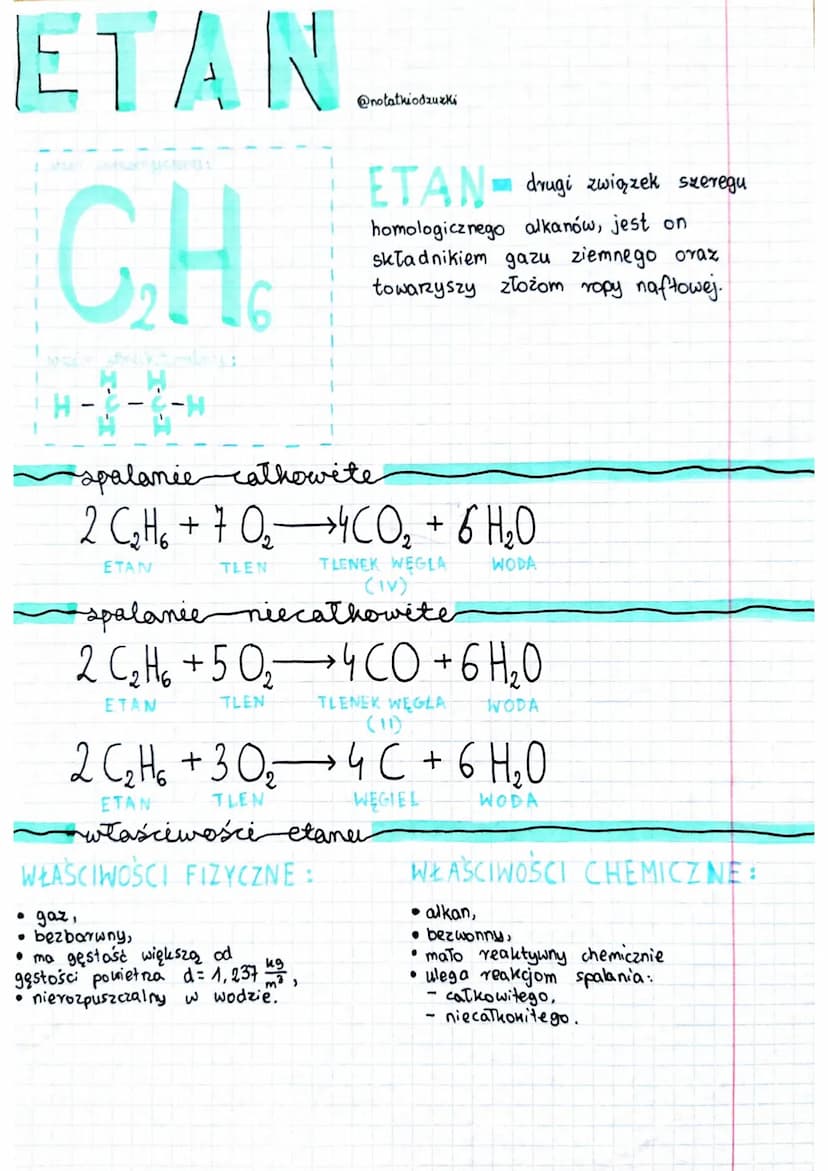 ETAN
@notatkiodzuzki
C₂H₆
ETAN - drugi związek szeregu
homologicznego alkanów, jest on
składnikiem gazu ziemnego oraz
towarzyszy złożom ropy naftowej.
H H
H - C - C - H
H H
spalanie całkowite
2 C₂H₆ + 7 O₂ → 4 CO₂ + 6 H₂O
ETAN TLEN TLENEK WĘGLA WODA
(IV)
spalanie niecałkowite
2 C₂H₆ + 5 O₂ → 4 CO + 6 H₂O
ETAN TLEN TLENEK WĘGLA WODA
(II)
2 C₂H₆ + 3 O₂ → 4 C + 6 H₂O
ETAN TLEN WĘGIEL WODA
właściwości etanu
WŁAŚCIWOŚCI FIZYCZNE :
• gaz,
• bezbarwny,
• ma gęstość większą od
gęstości powietrza d = 1,237 kg/m³,
• nierozpuszczalny w wodzie.
WŁAŚCIWOŚCI CHEMICZNE :
• alkan,
• bezwonny,
• mało reaktywny chemicznie
• ulega reakcjom spalania:
- całkowitego,
- niecałkowitego.